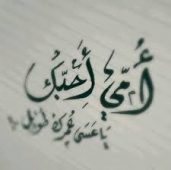 أُمّي أُحبّك
يا عسى عمرك طويل